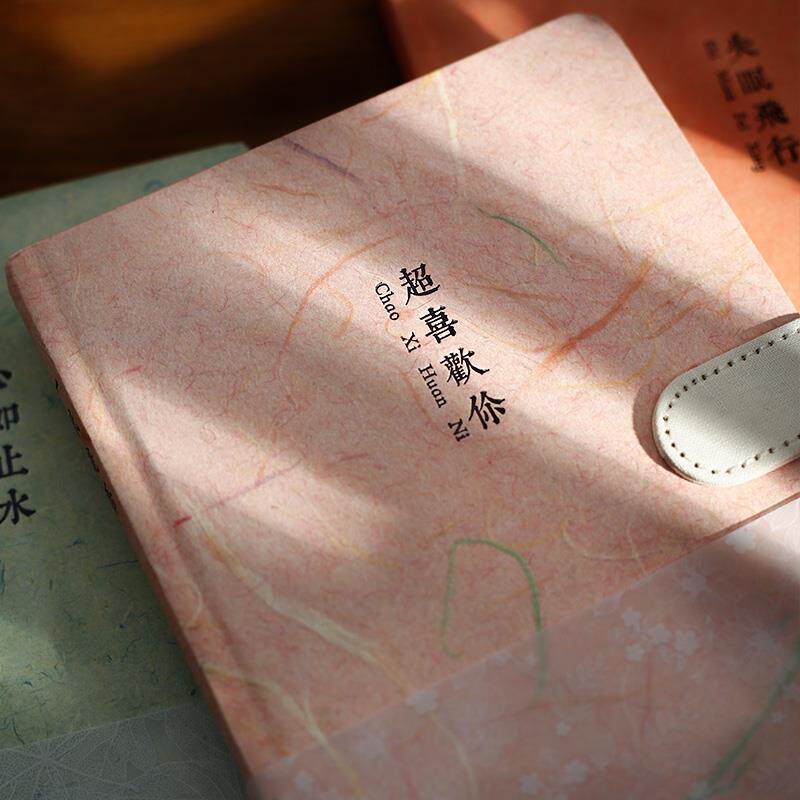 超喜歡你
Chao Xi Huan Ni
失眠飛行
如止水